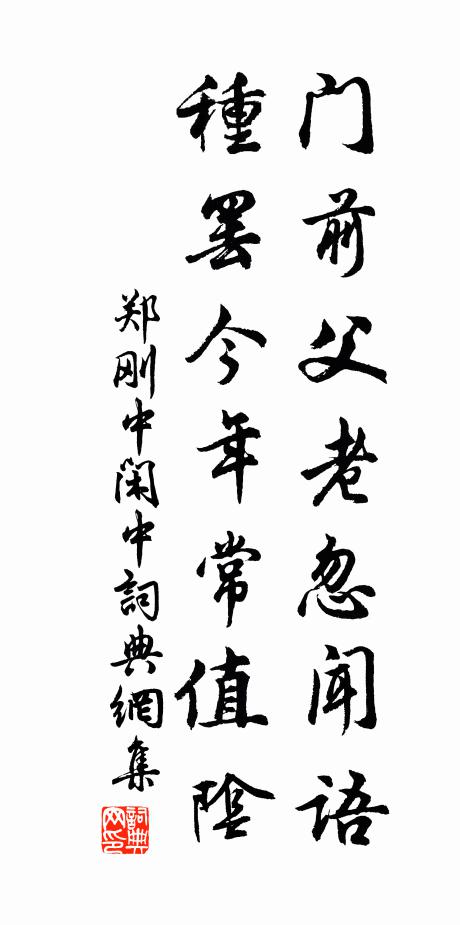 门前父老忽闻語
種罢今年常值陰
郑刚中闲中詞典網集
詞典网印